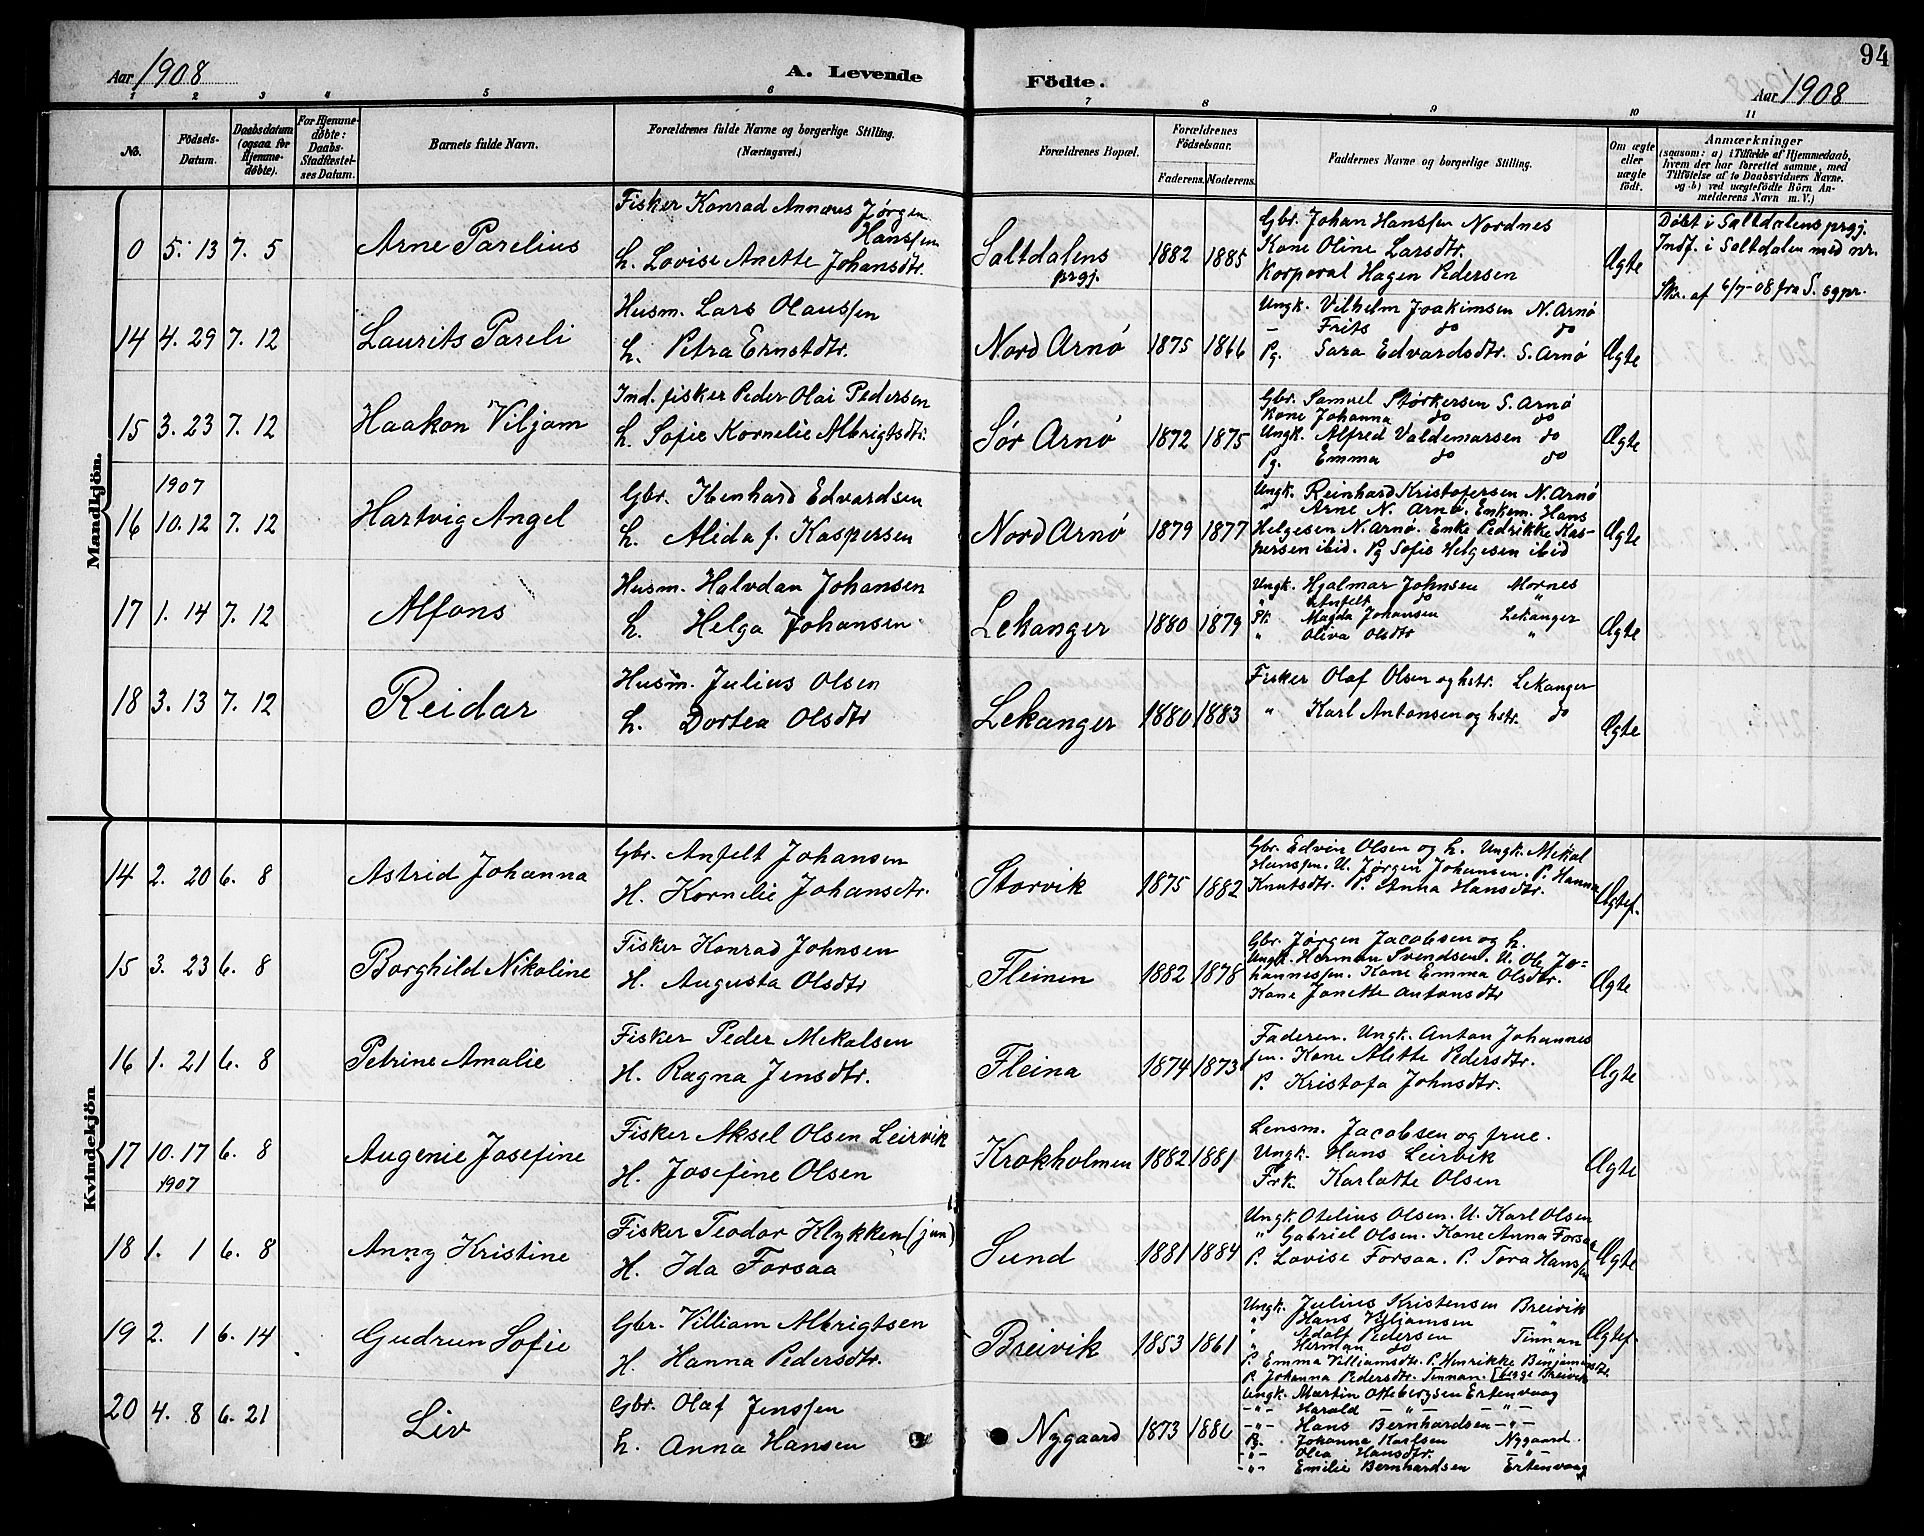 94
Aar 1908
A. Levende
Födte.
Aar 1908
1 2 3 4 5 6 7 8 9 10 11
No.
Födsels-
Datum.
Daabsdatum
(ogsaa for
Hjemme-
døbte).
For Hjemme-
døbte:
Daabs-
Stadfæstel-
ses Datum.
Barnets fulde Navn.
Forældrenes fulde Navne og borgerlige Stilling.
(Næringsvei.)
Forældrenes Bopæl.
Forældrenes
Födselsaar.
Faderens.
Moderens.
Faddernes Navne og borgerlige Stilling.
Om ægte
eller
uægte
født.
Anmærkninger
(saasom: a) i Tilfælde af Hjemmedaab,
hvem der har forrettet samme, med
Tilföielse af to Daabsvidners Navne.
og b) ved uægtefödte Börn An-
melderens Navn m. V.)
Mandkjön.
0 5. 13 7. 5 Arne Parelius
Fisker Konrad Annæus Jørgen
Hanssen
h. Lovise Anette Johansdtr.
Saltdalens
prgj.
1882 1885
Gbr. Johan Hanssen Nordnes
Kone Oline Larsdtr.
Korporal Hagen Pedersen
Ægte
Døbt i Saltdalens prgj.
Indf. i Saltdalen med nr.
Skr. af 6/7-08 fra S. sgpr.
14 4. 29 7. 12 Laurits Pareli
Husm. Lars Olaussen
h. Petra Ernstdtr.
Nord Arnö 1875 1866
Ungk. Vilhelm Joakimsen N. Arnö
— Frits do do
Pg. Sara Edvardsdtr. S. Arnö
Ægte
15 3. 23 7. 12 Haakon Viljam
Ind. fisker Peder Olai Pedersen
h. Sofie Kornelie Albrigtsdtr.
Sör Arnö 1872 1875
Gbr. Samuel Størkersen S. Arnö
Kone Johanna do do
Ungk. Alfred Valdemarsen do
Pg. Emma do do
Ægte
1907
16 10. 12 7. 12 Hartvig Angel
Gbr. Ibenhard Edvardsen
h. Alida f. Kaspersen
Nord Arnö 1879 1877
Ungk. Reinhard Kristofersen N. Arnö
" Arne N. Arnö. Enkem. Hans
Helgesen N. Arnö. Enke Pedrikke Kas-
persen ibid. Pg Sofie Helgesen ibid
Ægte
17 1. 14 7. 12 Alfons
Husm. Halvdan Johansen
h. Helga Johansen
Lekanger 1880 1879
Ungk. Hjalmar Johnsen Mornes
" Anfelt do "
Pk. Magda Johansen Lekanger
" Oliva Olsdtr "
Ægte
18 3. 13 7. 12 Reidar
Husm. Julius Olsen
h. Dortea Olsdtr
Lekanger 1880 1883
Fisker Olaf Olsen og hstr. Lekanger
" Karl Antonsen og hstr. do
Ægte
Kvindekjön
14 2. 20 6. 8 Astrid Johanna
Gbr. Anfelt Johansen
H. Kornelie Johansdtr.
Storvik 1875 1882
Gbr. Edvin Olsen og h. Ungk. Mekal
Hanssen. U. Jørgen Johansen. P. Hanna
Knutsdtr. P. Anna Hansdtr.
Ægtef.
15 3. 23 6. 8 Borghild Nikoline
Fisker Konrad Johnsen
H. Augusta Olsdtr
Fleinen 1882 1878
Gbr. Jørgen Jacobsen og h.
Ungk. Herman Svendsen. U. Ole Jo-
hannessen. Kone Emma Olsdtr.
Kone Janette Antonsdtr
Ægte
16 1. 21 6. 8 Petrine Amalie
Fisker Peder Mekalsen
H. Ragna Jensdtr.
Fleina 1874 1873
Faderen. Ungk. Anton Johannes
sen. Kone Alette Pedersdtr.
P. Kristofa Johnsdtr.
Ægte
17 10. 17 6. 8 Augenie Josefine
1907
Fisker Aksel Olsen Leirvik
H. Josefine Olsen
Krokholmen 1882 1881
Lensm. Jacobsen og frue.
Ungk. Hans Leirvik
Frk. Karlotte Olsen
Ægte
18 1. 1 6. 8 Anny Kristine
Fisker Teodor Klykken (jun)
H. Ida Forsaa
Sund 1881 1884
Ungk. Otelius Olsen. U. Karl Olsen
" Gabriel Olsen. Kone Anna Forsaa
P. Lovise Forsaa. P. Tora Hanssen
Ægte
19 2. 1 6. 14 Gudrun Sofie
Gbr. Villiam Albrigtsen
H. Hanna Pedersdtr.
Breivik 1853 1861
Ungk. Julius Kristensen Breivik
" Hans Viljamsen "
" Adolf Pedersen Tinnan
" Herman do "
P. Emma Villiamsdtr. P. Henrikke Benjamins
P. Johanna Pedersdtr. Tinnan. [begge Breivik
Ægtef.
20 4. 8 6. 21 Liv
Gbr. Olaf Jenssen
h. Anna Hansen
Nygaard 1873 1886
Ungk. Martin Ottebergsen Ertenvaag
-"- Harald -"- -"-
-"- Hans Bernhardsen -"-
Pg. Johanna Karlsen Nygaard
-"- Olea Hansdtr. -"-
-"- Emilie Bernhardsen Ertenvaag